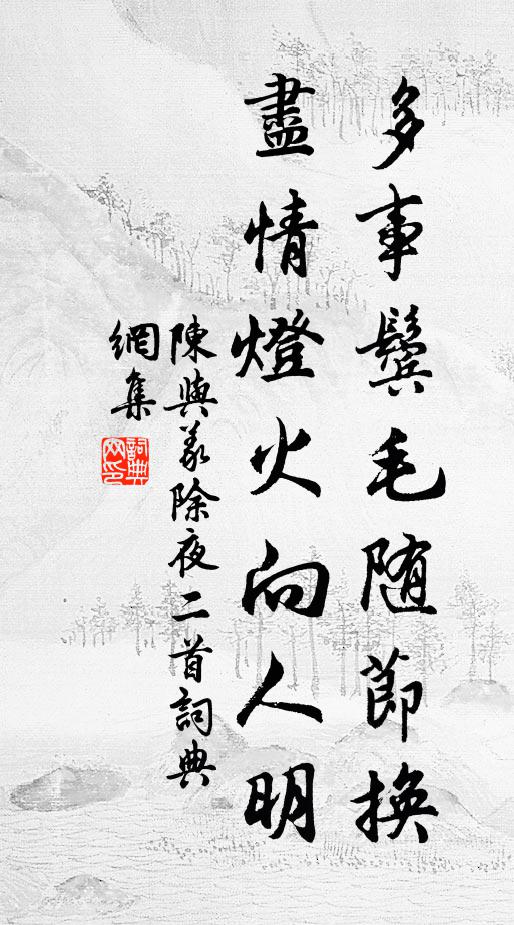 多事鬓毛随節換
盡情燈火向人明
陳與義除夜二首詞典
網集
詞典网印